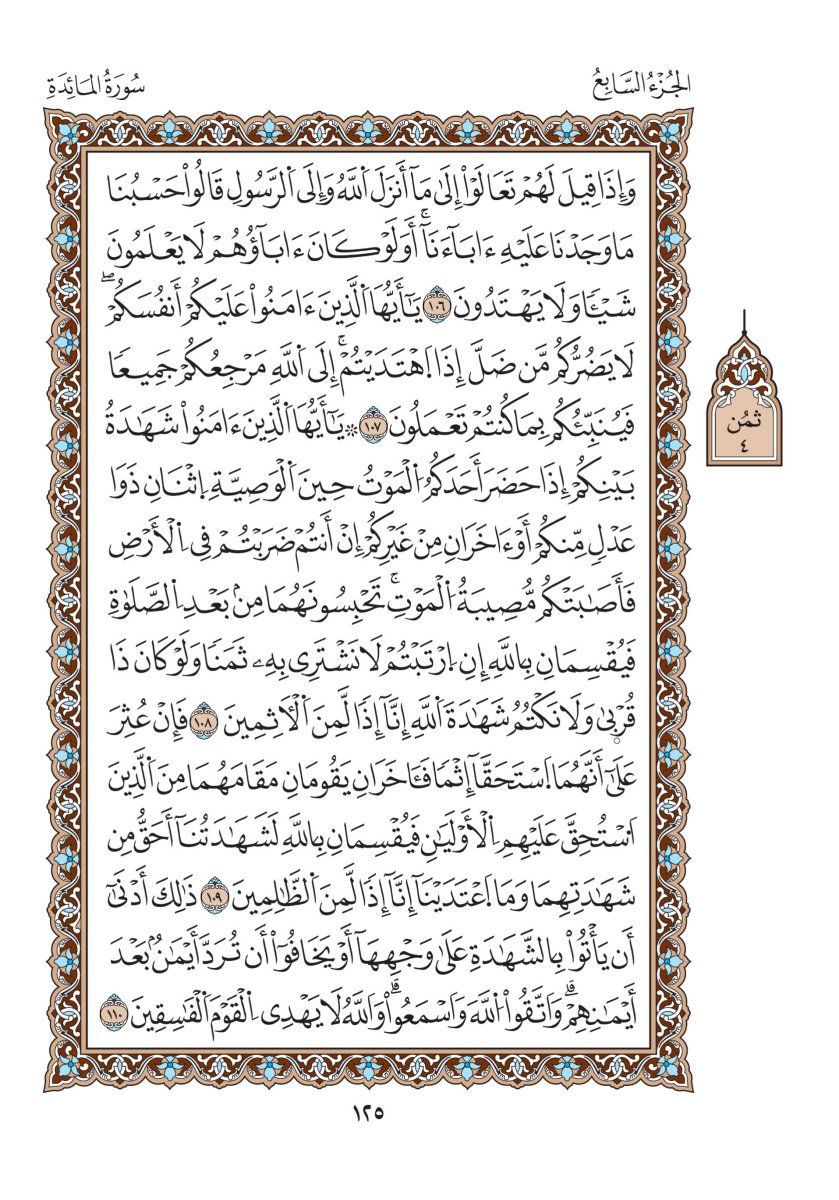 الجُزْءُ السَّابِعُ
سُورَةُ المَائِدَةِ
وَإِذَا قِيلَ لَهُمْ تَعَالَوْاْ إِلَىٰ مَآ أَنزَلَ اَ۬للَّهُ وَإِلَى اَ۬لرَّسُولِ قَالُواْ حَسْبُنَا
مَا وَجَدْنَا عَلَيْهِ ءَابَآءَنَآۚ أَوَلَوْ كَانَ ءَابَآؤُهُمْ لَا يَعْلَمُونَ
شَيْـٔٗا وَلَا يَهْتَدُونَ ١٠٦ يَـٰٓأَيُّهَا اَ۬لَّذِينَ ءَامَنُواْ عَلَيْكُمْ أَنفُسَكُمْۖ
لَا يَضُرُّكُم مَّن ضَلَّ إِذَا اَ۪هْتَدَيْتُمْۚ إِلَى اَ۬للَّهِ مَرْجِعُكُمْ جَمِيعٗا
فَيُنَبِّئُكُم بِمَا كُنتُمْ تَعْمَلُونَ ١٠٧ ۞ يَـٰٓأَيُّهَا اَ۬لَّذِينَ ءَامَنُواْ شَهَـٰدَةُ
بَيْنِكُمْ إِذَا حَضَرَ أَحَدَكُمُ اُ۬لْمَوْتُ حِينَ اَ۬لْوَصِيَّةِ اِ۪ثْنَـٰنِ ذَوَا
عَدْلٖ مِّنكُمْ أَوَ ءَاخَرَانِ مِنْ غَيْرِكُمْ إِنْ أَنتُمْ ضَرَبْتُمْ فِى اِ۬لْأَرْضِ
فَأَصَـٰبَتْكُم مُّصِيبَةُ اُ۬لْمَوْتِۚ تَحْبِسُونَهُمَا مِنۢ بَعْدِ اِ۬لصَّلَوٰةِ
فَيُقْسِمَانِ بِاللَّهِ إِنِ اِ۪رْتَبْتُمْ لَا نَشْتَرِى بِهِۦ ثَمَنٗا وَلَوْ كَانَ ذَا
قُرْبۭىٰ وَلَا نَكْتُمُ شَهَـٰدَةَ اَ۬للَّهِ إِنَّآ إِذٗا لَّمِنَ اَ۬لْأَثِمِينَ ١٠٨ فَإِنْ عُثِرَ
عَلَىٰٓ أَنَّهُمَا اَ۪سْتَحَقَّآ إِثْمٗا فَـَٔاخَرَانِ يَقُومَانِ مَقَامَهُمَا مِنَ اَ۬لَّذِينَ
اَ۟سْتُحِقَّ عَلَيْهِمِ اِ۬لْأَوْلَيَـٰنِ فَيُقْسِمَانِ بِاللَّهِ لَشَهَـٰدَتُنَآ أَحَقُّ مِن
شَهَـٰدَتِهِمَا وَمَا اَ۪عْتَدَيْنَآ إِنَّآ إِذٗا لَّمِنَ اَ۬لظَّـٰلِمِينَ ١٠٩ ذَٰلِكَ أَدْنَىٰٓ
أَن يَأْتُواْ بِالشَّهَـٰدَةِ عَلَىٰ وَجْهِهَآ أَوْ يَخَافُوٓاْ أَن تُرَدَّ أَيْمَـٰنُۢ بَعْدَ
أَيْمَـٰنِهِمْۗ وَاتَّقُواْ اُ۬للَّهَ وَاسْمَعُواْۗ وَاللَّهُ لَا يَهْدِى اِ۬لْقَوْمَ اَ۬لْفَـٰسِقِينَ ١١٠
ثُمُن
٤
١٢٥